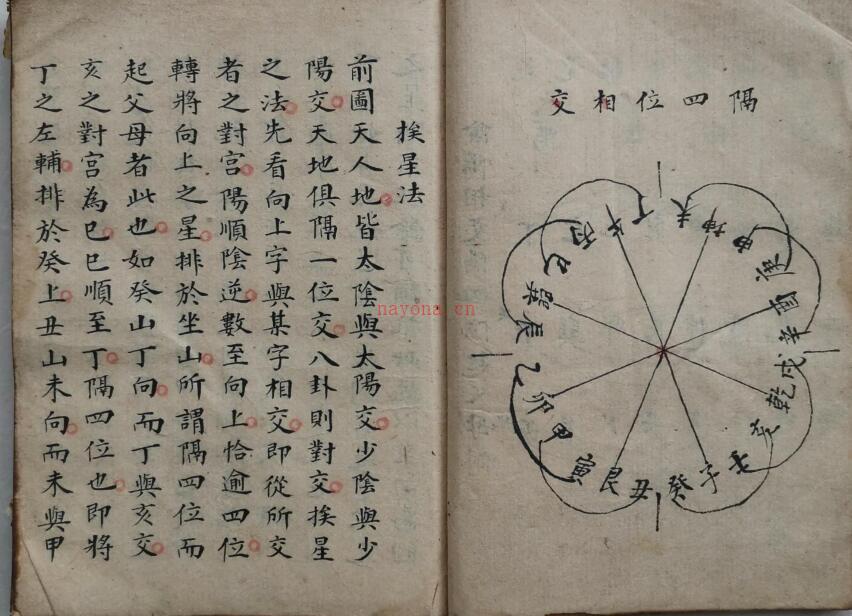 隔四位相交
丁
午
丙
巳
巽
辰
乙
卯
甲
寅
艮
丑
癸
子
壬
亥
乾
戌
辛
酉
庚
申
坤
未
挨星法
前圖天人地皆太陰與太陽交少陰與少
陽交天地俱隔一位交八卦則對交挨星
之法先看向上字與某字相交即從所交
者之對宮陽順陰逆數至向上恰逾四位
轉將向上之星排於坐山所謂隔四位而
起父母者此也如癸山丁向而丁與亥交
亥之對宮為巳巳順至丁隔四位也即將
丁之左輔排於癸上丑山未向而未與甲
nayona.cn